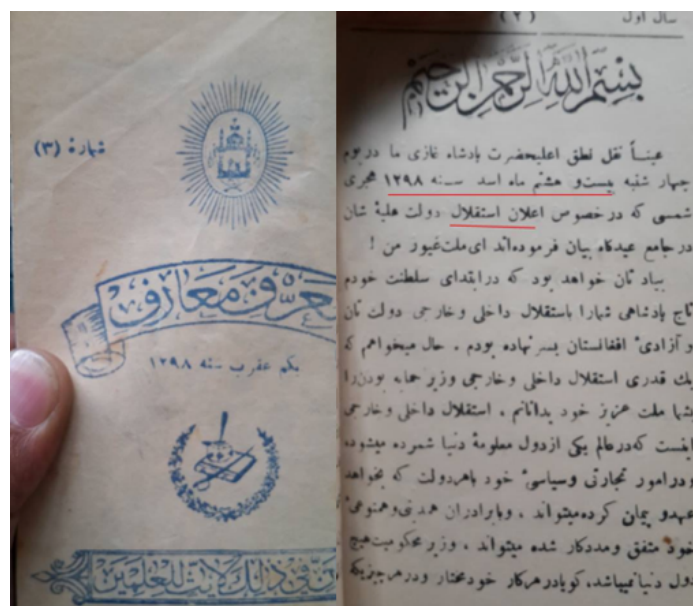 شمارهٔ (۳)
معرّف معارف
یکم عقرب سنه ۱۲۹۸
فی ذلك لآیات للعلمین
سال اول
(۲)
بسم الله الرحمن الرحیم
عیناً نقل نطق اعلیحضرت پادشاه غازی ما در یوم
چهار شنبه بیست و هشتم ماه اسد سـنه ۱۲۹۸ هجری
شمسی که در خصوص اعلان استقلال دولت علیهٔ شان
در جامع عیدگاه بیان فرموده‌اند ای ملت غیور من !
بیاد تان خواهد بود که در ابتدای سلطنت خودم
تاج پادشاهی شمارا باستقلال داخلی وخارجی دولت تان
و آزادیٔ افغانستان بسر نهاده بودم . حال میخواهم که
یك قدری استقلال داخلی وخارجی وزیر حمایه بودن را
بشما ملت عزیز خود بدانانم . استقلال داخلی وخارجی
اینست که در عالم یکی از دول معلومهٔ دنیا شمرده میشوده
ودر امور تجارتی وسیاسیٔ خود باهر دولت که بخواهد
عهدو پیمان کرده میتواند . وبابرادران همدینی وهمنوعیٔ
خود متفق ومددکار شده میتواند . وزیر محکومیت هیچ
دول دنیا نمیباشد، گویا در هرکار خود مختار ودر هر چیزیکه